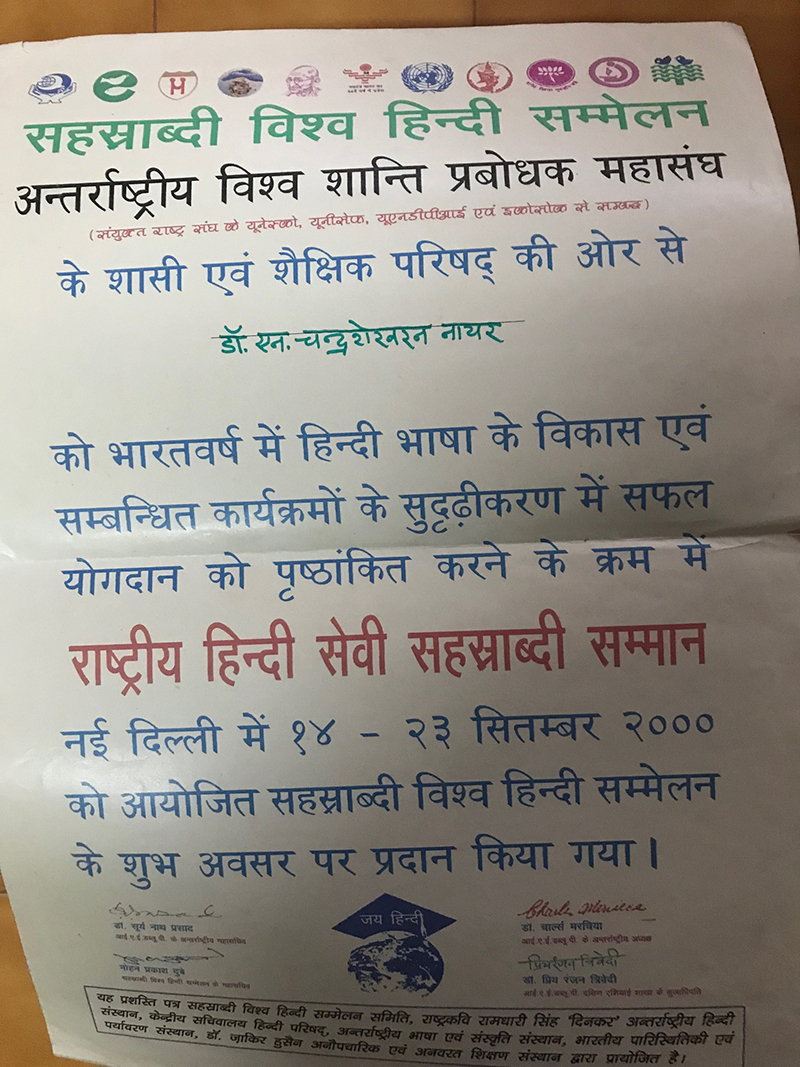 सहस्राब्दी विश्व हिन्दी सम्मेलन
अन्तर्राष्ट्रीय विश्व शान्ति प्रबोधक महासंघ
(संयुक्त राष्ट्र संघ के यूनेस्को, यूनीसेफ, यूएनडीपीआई एवं इकोसोक से सम्बद्ध)
के शासी एवं शैक्षिक परिषद् की ओर से
डॉ. एन. चन्द्रशेखरन नायर
को भारतवर्ष में हिन्दी भाषा के विकास एवं
सम्बन्धित कार्यक्रमों के सुदृढ़ीकरण में सफल
योगदान को पृष्ठांकित करने के क्रम में
राष्ट्रीय हिन्दी सेवी सहस्राब्दी सम्मान
नई दिल्ली में १४ - २३ सितम्बर २०००
को आयोजित सहस्राब्दी विश्व हिन्दी सम्मेलन
के शुभ अवसर पर प्रदान किया गया।
जय हिन्दी
डा. सूर्य नाथ प्रसाद
आई.ए.ई.डब्लू.पी. के अन्तर्राष्ट्रीय महासचिव
मोहन प्रकाश दुबे
सहस्राब्दी विश्व हिन्दी सम्मेलन के महासचिव
डा. चार्ल्स मरचिया
आई.ए.ई.डब्लू.पी. के अन्तर्राष्ट्रीय अध्यक्ष
प्रियरंजन त्रिवेदी
डा. प्रिय रंजन त्रिवेदी
आई.ए.ई.डब्लू.पी. दक्षिण एशियाई शाखा के कुलाधिपति
यह प्रशस्ति पत्र सहस्राब्दी विश्व हिन्दी सम्मेलन समिति, राष्ट्रकवि रामधारी सिंह 'दिनकर' अन्तर्राष्ट्रीय हिन्दी
संस्थान, केन्द्रीय सचिवालय हिन्दी परिषद्, अन्तर्राष्ट्रीय भाषा एवं संस्कृति संस्थान, भारतीय पारिस्थितिकी एवं
पर्यावरण संस्थान, डॉ. ज़ाकिर हुसैन अनौपचारिक एवं अनवरत शिक्षण संस्थान द्वारा प्रायोजित है।